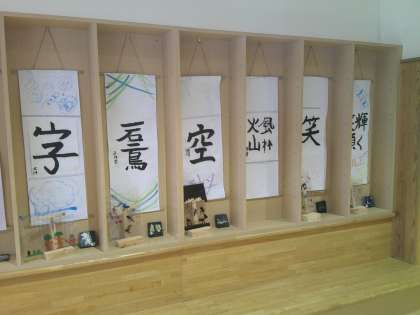 字
石鳥
空
風林
火山
笑
輝く
笑顔